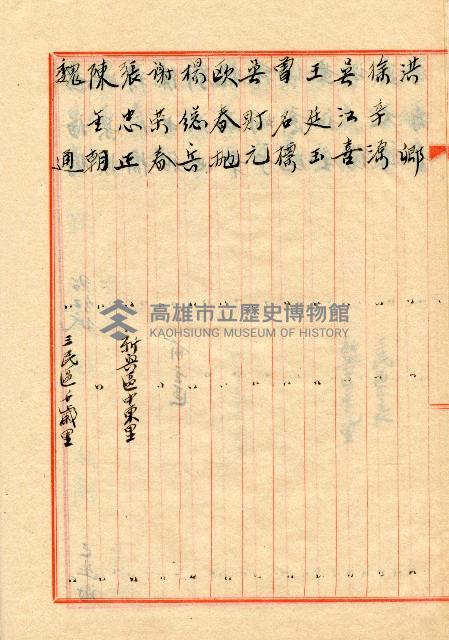 洪鄉
徐辛源
吳江喜
王廷玉
曹石標
吳財元
歐春地
楊從兵
謝萊春
張忠正 新興區中東里
陳金朝
魏通 三民區千歲里
高雄市立歷史博物館
KAOHSIUNG MUSEUM OF HISTORY